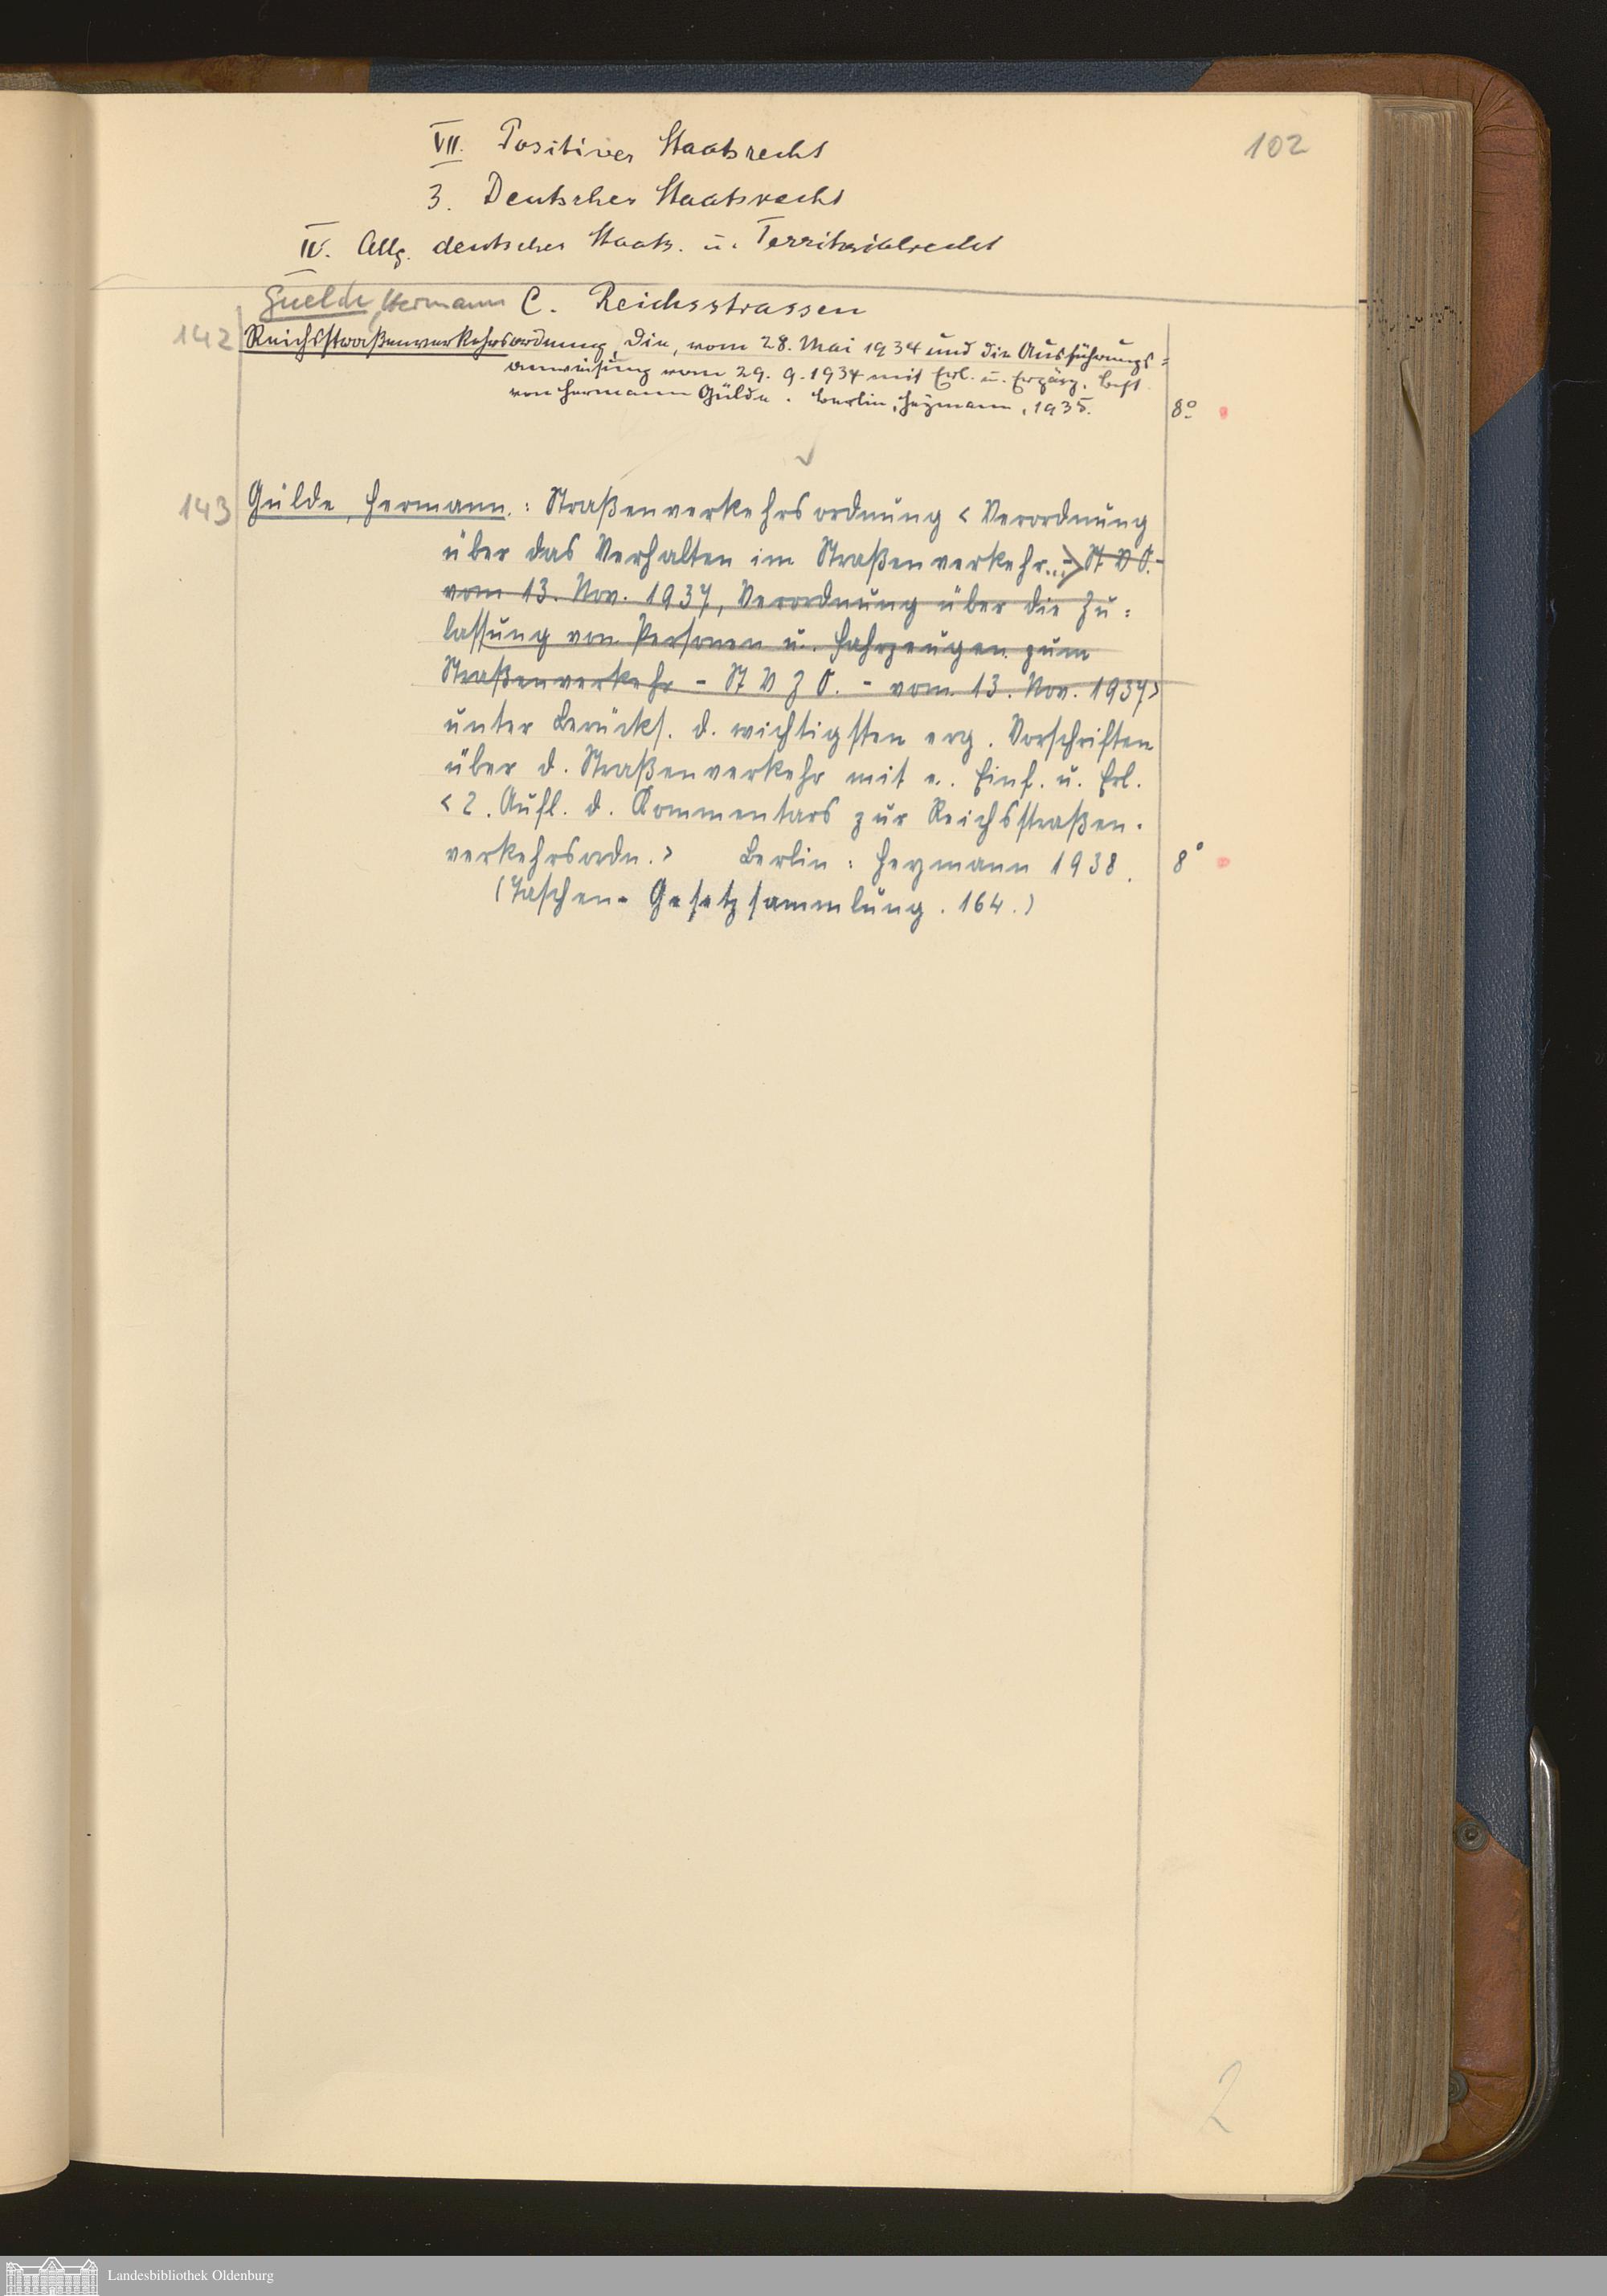 102
VII. Positives Staatsrecht
3. Deutsches Staatsrecht
IV. Allg. deutsches Staats- u. Territorialrecht
Guelde, Hermann C. Reichsstrassen
142 Reichsstraßenverkehrsordnung, Die, vom 28. Mai 1934 und die Ausführungs=
anweisung vom 29. 9. 1934 mit Erl. u. Ergänz. Best.
von Hermann Gülde. Berlin, Heymann, 1935. 8º
143 Gülde, Hermann.: Straßenverkehrsordnung < Verordnung
über das Verhalten im Straßenverkehr...> - St V O. -
vom 13. Nov. 1937, Verordnung über die Zu=
lassung von Personen u. Fahrzeugen zum
Straßenverkehr - St V Z O. - vom 13. Nov. 1937>
unter Berücks. d. wichtigsten erg. Vorschriften
über d. Straßenverkehr mit e. Einf. u. Erl.
< 2. Aufl. d. Kommentars zur Reichsstraßen-
verkehrsordn. > Berlin: Heymann 1938. 8°
(Taschen-Gesetzsammlung. 164.)
2
Landesbibliothek Oldenburg